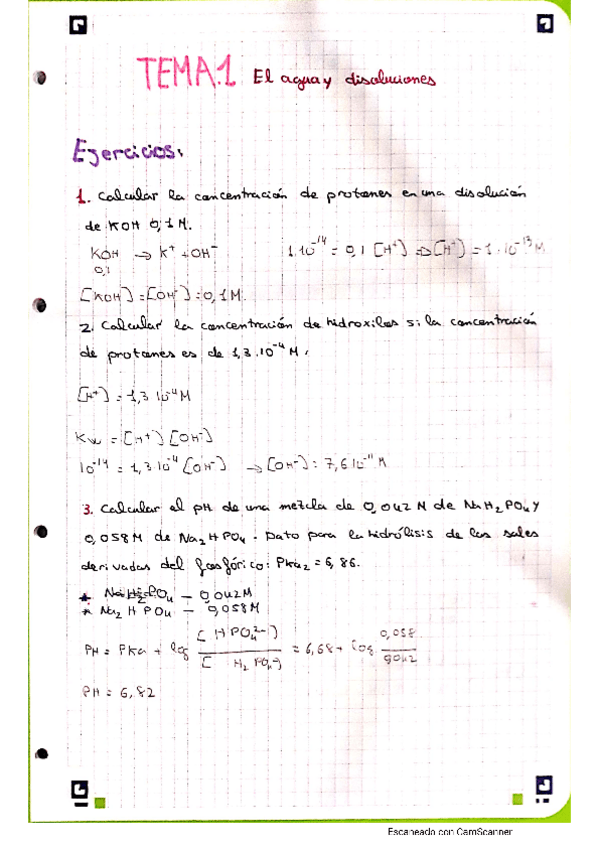 TEMA.1 El agua y disoluciones
Ejercicios:
1. Calcular la concentración de protones en una disolución
de KOH 0,1 M.
KOH → K⁺ + OH⁻ 1·10⁻¹⁴ = 0,1 [H⁺] ⇒ [H⁺] = 1·10⁻¹³ M
0,1
[KOH] = [OH⁻] = 0,1 M.
2. Calcular la concentración de hidroxilos si la concentración
de protones es de 1,3·10⁻⁴ M.
[H⁺] = 1,3 10⁻⁴ M
Kw = [H⁺] [OH⁻]
10⁻¹⁴ = 1,3 10⁻⁴ [OH⁻] → [OH⁻] = 7,6 10⁻¹¹ M
3. Calcular el pH de una mezcla de 0,042 M de NaH₂PO₄ y
0,058 M de Na₂HPO₄. Dato para la hidrólisis de las sales
derivadas del fosfórico: Pka₂ = 6,86.
* NaH₂PO₄ – 0,042 M
* Na₂HPO₄ – 0,058 M
PH = PKa + log [HPO₄²⁻] / [H₂PO₄⁻] = 6,68 + log 0,058 / 0,042
PH = 6,82
Escaneado con CamScanner